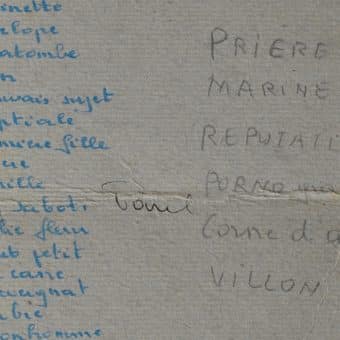 nette
elope
atombe
n
uvais sujet
ptiale
mière fille
ère
ille
sabots
lie fleur
ub petit
care
uvergnat
bie
onhomme
PRIÈRE
MARINE
REPUTATI
PORNOgra
Corne d'a
VILLON